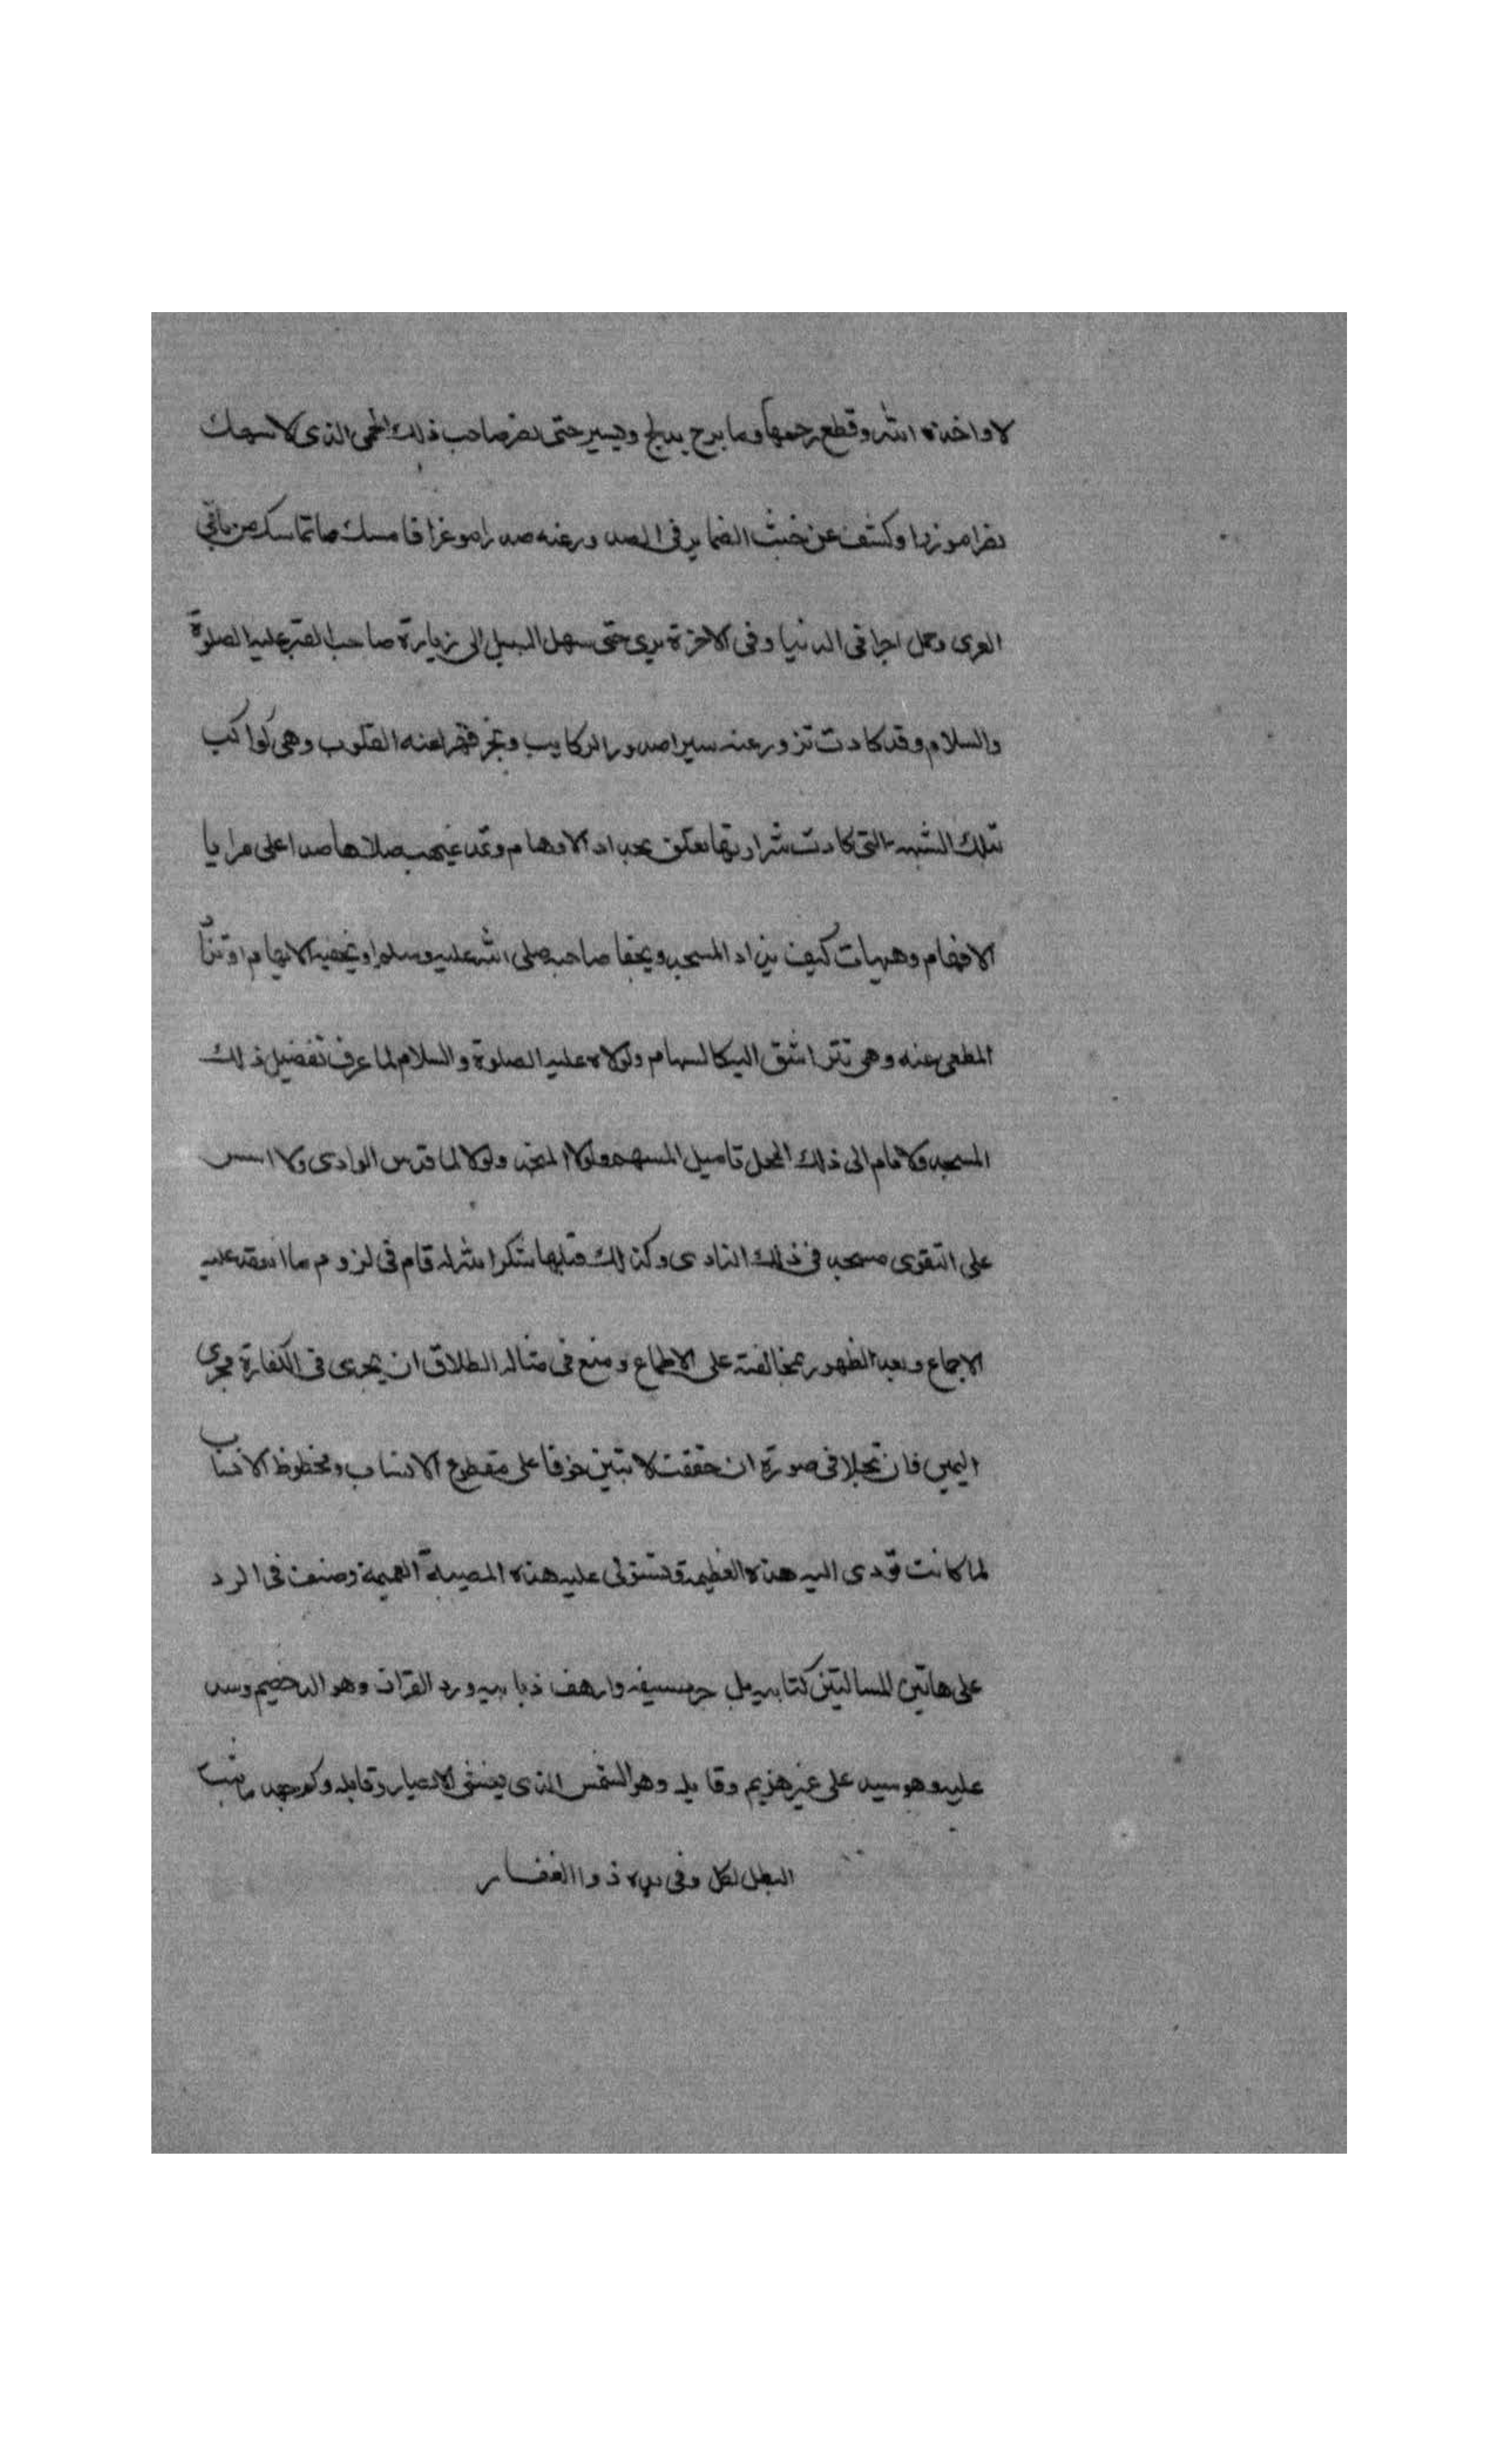 لا واخذه الله وقطع رحمها وما برح يدلج ويسير حتى نصر صاحب ذلك الحمى الذي لا ينتهك
نصرا موزرا وكشف عن خبث الضماير في الصد ورعنه صدرا موغرا فامسك ما تماسك من باقي
العرى وحمل اجرا في الدنيا وفي الاخرة يرى حتى سهل السبيل الى زيارة صاحب القبر عليه الصلوة
والسلام وقد كادت تزور عنه سيرا صدور الركايب وتجر قهرا عنه القلوب وهي كواكب
تلك الشبهة التي كادت شرارتها تعلق بحداد الاوهام وتمد غيهب صلاها صدا على مرايا
الافهام وهيهات كيف يزار المسجد ويجفا صاحبه صلى الله عليه وسلم او يخفيه الابهام او تناد
المطي عنه وهي تتراشق اليه كالسهام ولولاه عليه الصلوة والسلام لما عرف تفضيل ذلك
المسجد ولا قام الى ذلك المحل تاميل المسهم ولا المنجد ولولا لما قدس الوادي ولا اسس
على التقوى مسجد في ذلك النادي وكذلك قبلها شكرا لله له قام في لزوم ما انعقد عليه
الاجماع وبعد الظهور بمخالفته على الاطماع ومنع في مسالة الطلاق ان يجرى في الكفارة مجرى
اليمين فان تجلا في صورة ان حققت لا تبين خوفا على مقطوع الانساب ومحظوظ الانساب
لما كانت تودى اليه هذه العظيمة وتستولى عليه هذه المصيبة العميمة وصنف في الرد
على هاتين المسالتين كتابيه بل جرد سيفه وارهف ذبابيه ورد القران وهو الد خصيم وسد
عليه وهو سيد على غير هزيم وقابله وهو الشمس الذي يعشى الابصار وقابله وكم جهد ما يثبت
البطل لعلى وفي يده ذوا الفقار